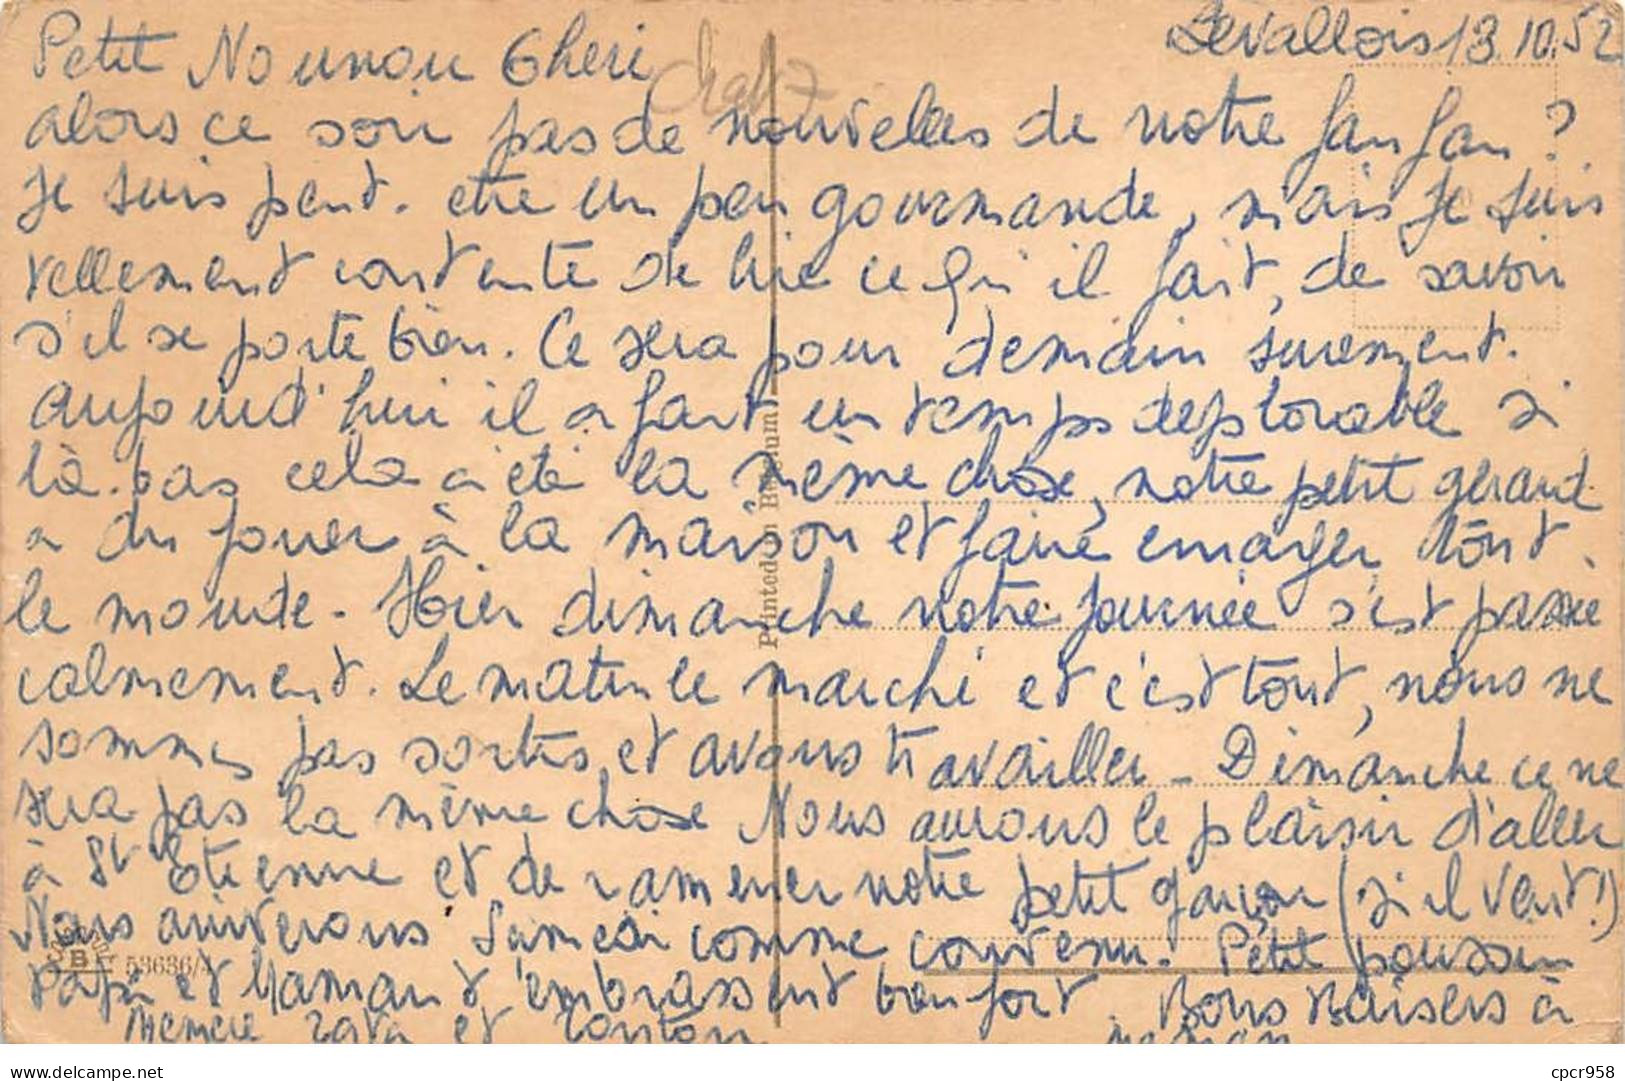 Levallois 13.10.52
Petit Nounou Cheri
alors ce soir pas de nouvelles de notre fanfan ?
Je suis peut-etre un peu gourmande, mais je suis
tellement contente de lire ce qu'il fait, de savoir
s'il se porte bien. Ce sera pour demain surement.
Aujourd'hui il a fait un temps deplorable si
là-bas cela a été la même chose, notre petit gerard
a du jouer à la maison et faire enrager tout
le monde - Hier dimanche notre journée s'est passée
calmement. Le matin le marché et c'est tout, nous ne
sommes pas sortis et avons travailler - Dimanche ce ne
sera pas la même chose Nous aurons le plaisir d'aller
à St Etienne et de ramener notre petit garçon (s'il veut!)
Nous arriverons Samedi comme convenu. Petit poussin
Papa et Maman t'embrassent bien fort Bons Baisers à
Memere tata et tonton
Printed in Belgium
B 53636/4
cpcr958